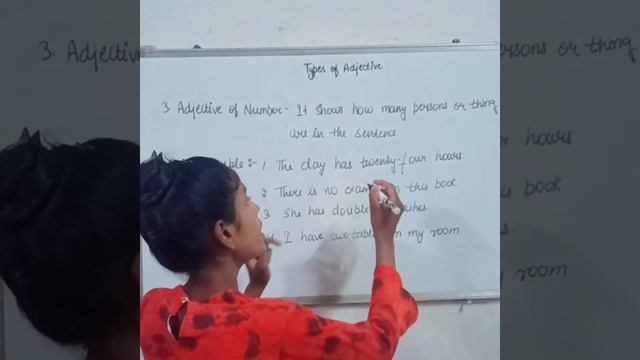 Types of Adjective
3. Adjective of Number - It shows how many persons or thing
are in the sentence
1. The day has twenty-four hours
2. There is no in this book.
3 She has
I have two in my room